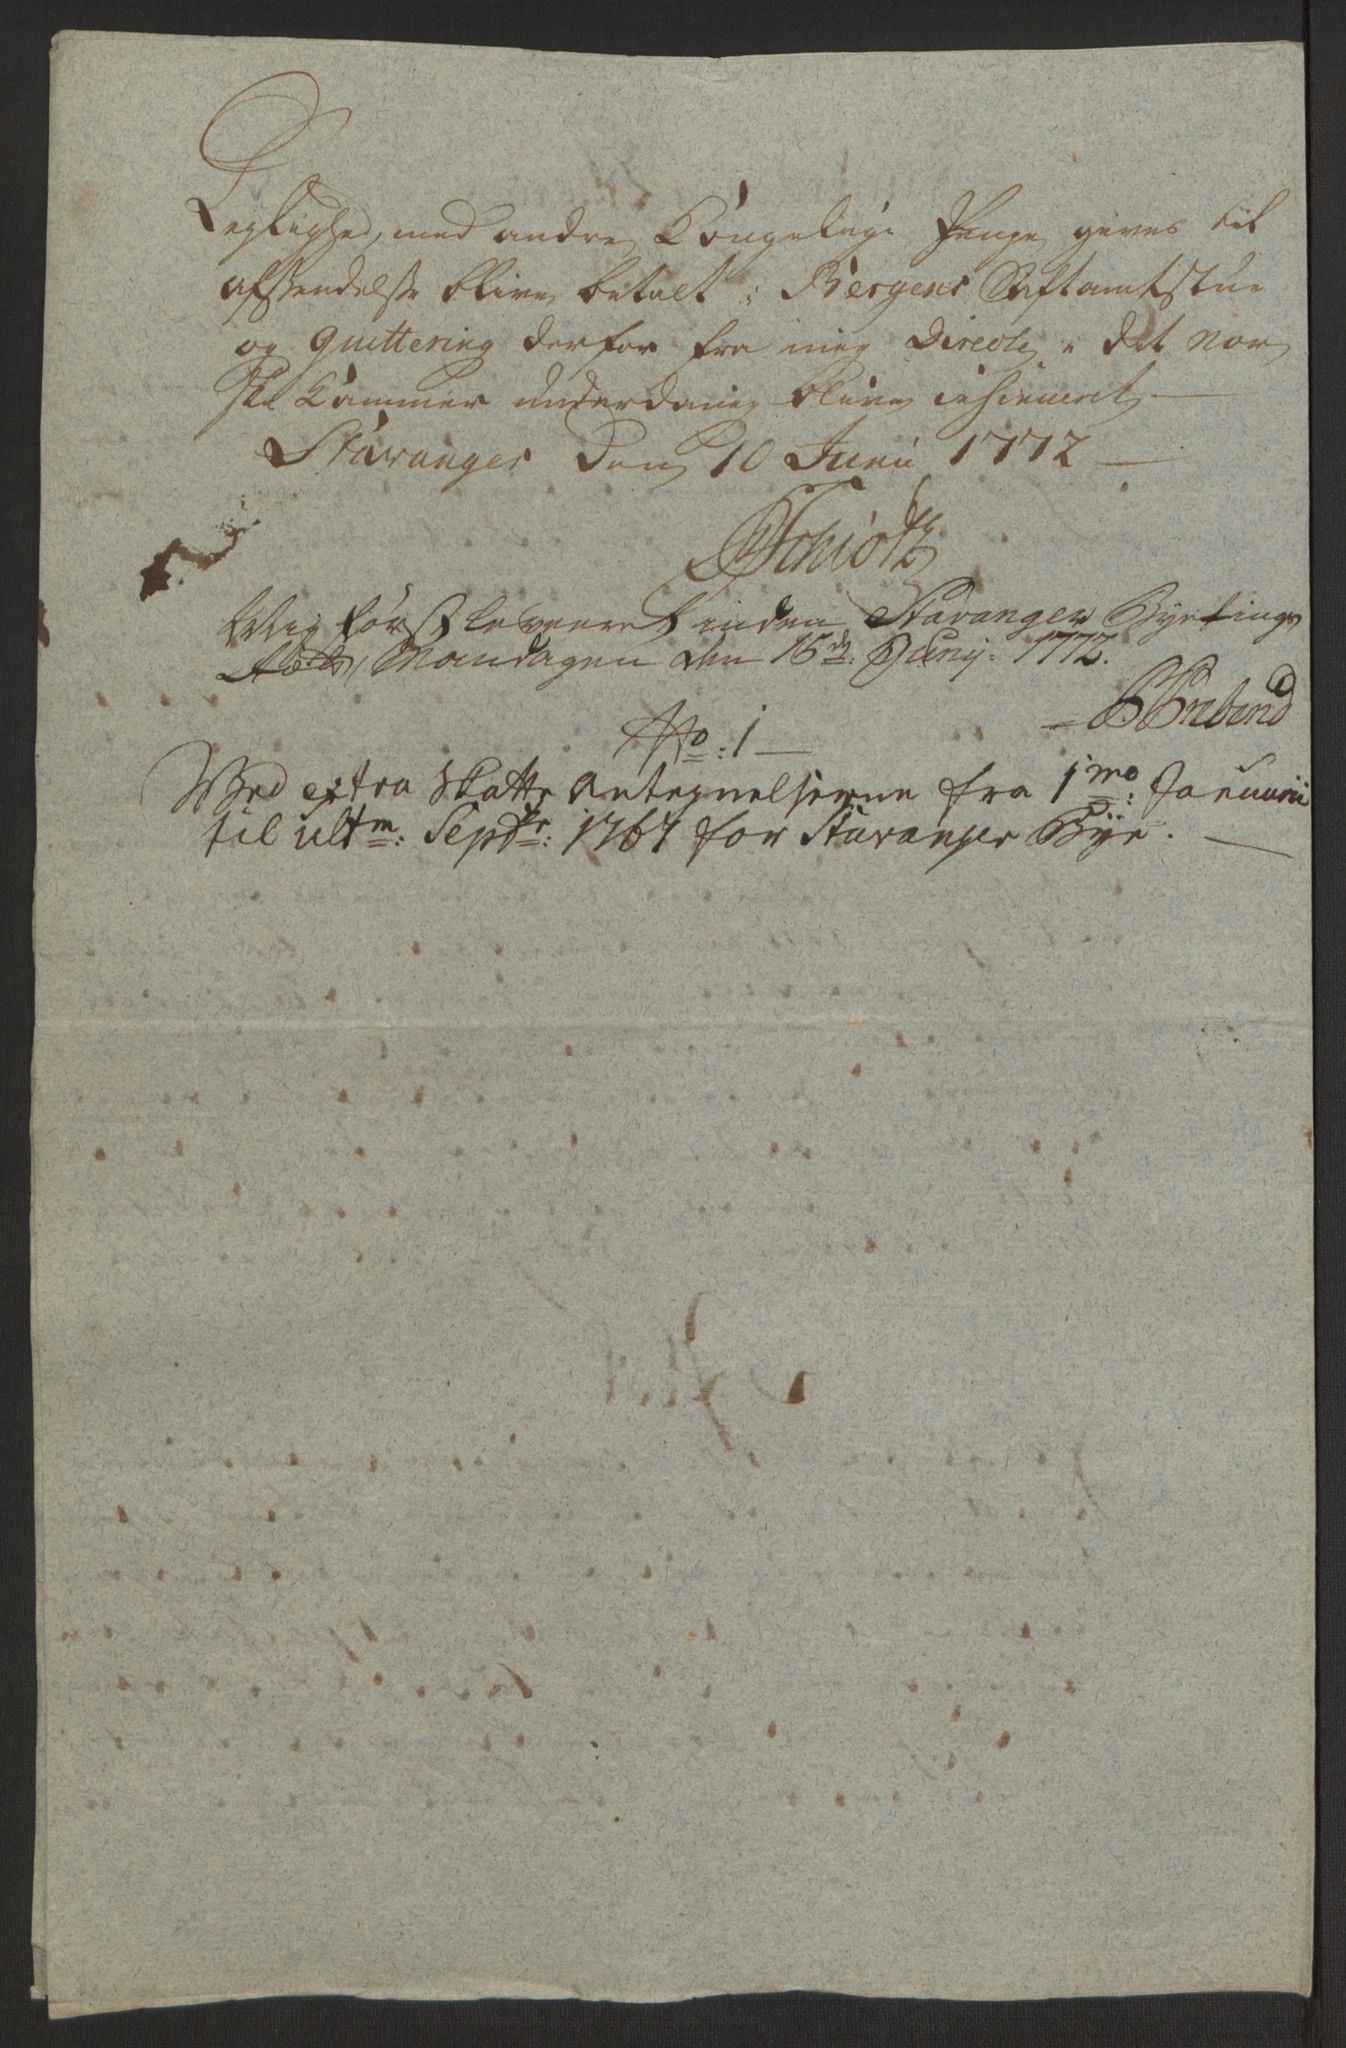 Leylighed, med andre Kongelige Penge gives til
afsendelse blive betalt i Bergens Stiftamtstue
og Quittering derfor fra mig Directe i det Nor
ske Kammer underdanig blive insinueret
Stavanger den 10 Junii 1772
Schiøtz
Mig først leveeret inden Stavanger Byetings
Mandagen den 15de Junij 1772.
No: 1
Wed extra Skatte Antegnelserne fra 1mo: Januarii
til ultm: Septbr: 1767 for Stavanger Bye.